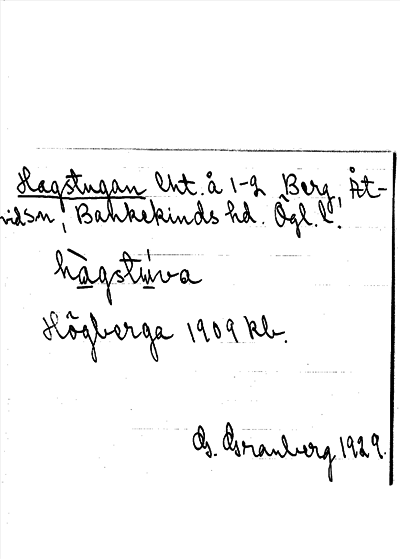 Hagstugan lht. å 1-2 Berg, Åt-
vidsn, Bankekinds hd. Ögl. l.
hàgstúva
Högberga 1909 kb.
G. Granberg 1929.